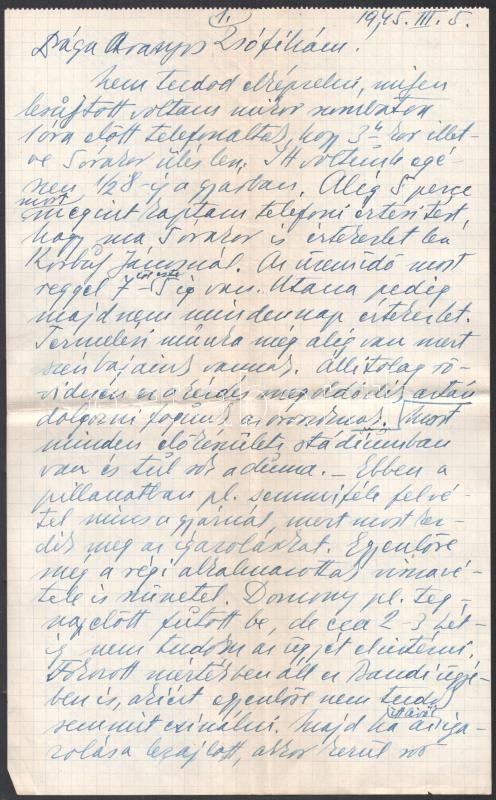 1.
1945. III. 5.
Drága Aranyos Zsófikám.
Nem tudod elképzelni, milyen
lesújtott voltam mikor szombaton
1 óra előtt telefonáltak hogy 3-kor illet-
ve 5 órakor ülés lesz. Itt voltunk egé-
szen 1/2 8-ig a gyárban. Alig 5 perce
most megint kaptam telefoni értesítést,
hogy ma 5 órakor is értekezlet lesz
Korbuly Jánosnál. Az üzemidő most
reggel 7 - 5 ig van. Utána pedig
majdnem minden nap értekezlet.
Termelési munka még alig van mert
szénbajaink vannak. Állítólag rö-
videsen ez a kérdés megoldódik aztán
dolgozni fogunk az oroszoknak. Most
minden előkészületi stádiumban
van és túl sok a duma. - Ebben a
pillanatban pl. semmiféle felvé-
tel nincs a gyárnál, mert most kez-
dik meg az igazolásokat. Egyenlőre
még a régi alkalmazottak visszavé-
tele is szünetel. Domony pl. teg-
napelőtt futott be, de cca 2-3 hét-
ig nem tudom az ügyét elintézni.
Fokozott mértékben áll ez Bandi ügyé-
ben is, akiért egyenlőre nem tudok
semmit csinálni. Majd ha az iga-
zolása lezajlott, akkor kerül sor